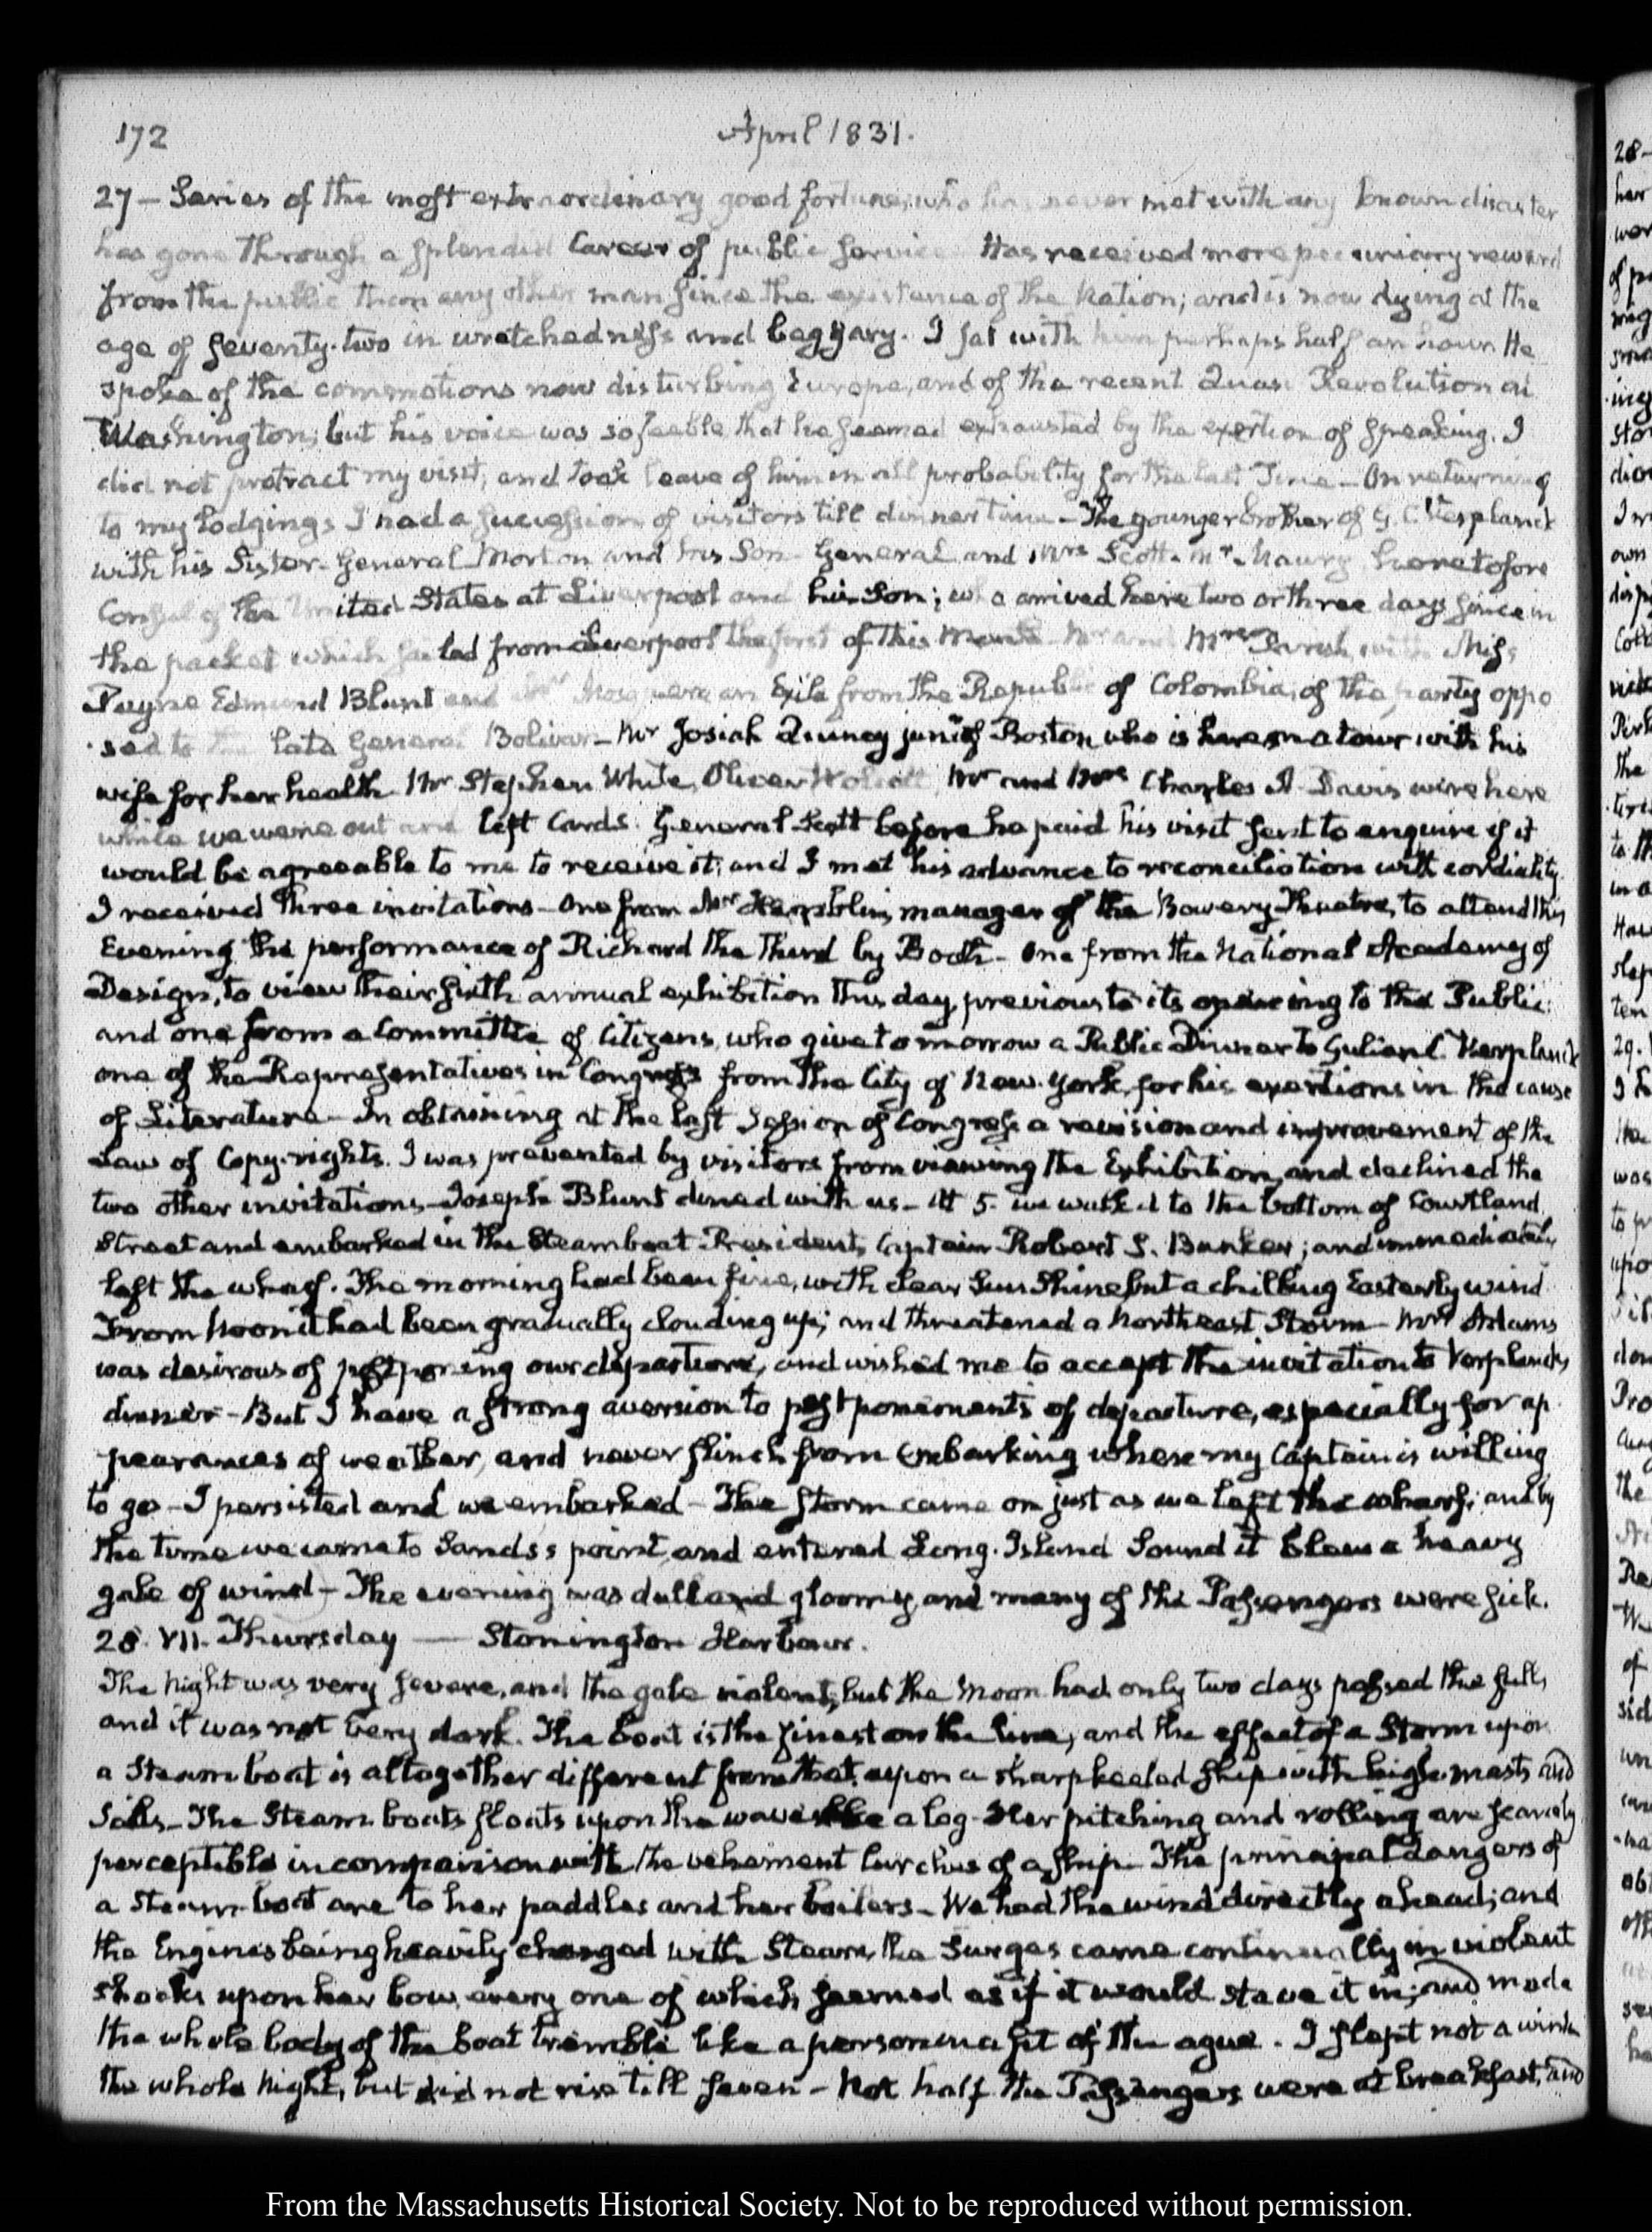 172 April 1831.
27 — Series of the most extraordinary good fortune, who has never met with any known disaster
has gone through a splendid Career of public service Has received more pecuniary reward
from the public than any other man since the existence of the Nation; and is now dying at the
age of seventy-two in wretchedness and beggary. I sat with him perhaps half an hour. He
spoke of the commotions now disturbing Europe, and of the recent Quasi Revolution at
Washington; but his voice was so feeble that he seemed exhausted by the exertion of speaking. I
did not protract my visit, and took leave of him in all probability for the last Time — On returning
to my lodgings I had a succession of visitors till dinner time — The younger brother of G. C. Verplanck
with his Sister — General Morton and his Son — General and Mrs Scott — Mr Maury heretofore
Consul of the United States at Liverpool and his Son; who arrived here two or three days since in
the packet which sailed from Liverpool the first of this Month — Mr and Mrs Parish, with Miss
Payne Edmund Blunt and an Exile from the Republic of Colombia, of the party oppo
sed to the late General Bolivar — Mr Josiah Quincy junr of Boston, who is here on a tour with his
wife for her health Mr Stephen White, Oliver Wolcott, Mr and Mrs Charles A. Davis were here
while we were out and left Cards. General Scott before he paid his visit sent to enquire if it
would be agreeable to me to receive it; and I met his advance to reconciliation with cordiality.
I received three invitations — One from Mr Hamblin, manager of the Bowery Theatre, to attend this
Evening the performance of Richard the Third by Booth — One from the National Academy of
Design, to view their sixth annual exhibition this day, previous to its opening to the Public:
and one from a Committee of Citizens, who give tomorrow a Public Dinner to Gulian C. Verplanck
one of the Representatives in Congress from the City of New-York, for his exertions in the cause
of Literature — In obtaining at the last Session of Congress a revision and improvement of the
Law of Copy-rights. I was prevented by visitors from viewing the Exhibition, and declined the
two other invitations — Joseph Blunt dined with us — At 5. we walked to the bottom of Courtland
Street and embarked in the Steamboat President, Captain Robert S. Bunker; and immediately
left the wharf. The morning had been fine, with clear Sun Shine but a chilling Easterly wind
From Noon it had been gradually clouding up; and threatened a North east Storm — Mrs Adams
was desirous of postponing our departure, and wished me to accept the invitation to Verplanck's
dinner — But I have a strong aversion to postponements of departure, especially for ap
pearances of weather, and never flinch from Embarking where my Captain is willing
to go — I persisted and we embarked — The storm came on just as we left the wharf; and by
the time we came to Sands's point, and entered Long-Island Sound it blew a heavy
gale of wind — The evening was dull and gloomy, and many of the Passengers were sick.
28. VII. Thursday — Stonington Harbour.
The Night was very severe, and the gale violent; but the Moon had only two days passed the full,
and it was not very dark. The boat is the finest on the line, and the effect of a Storm upon
a Steam boat is altogether different from that upon a sharp keeled ship with high masts and
Sails — The Steam boats floats upon the wave like a log — Her pitching and rolling are scarcely
perceptible in comparison with the vehement lurches of a ship — The principal dangers of
a Steam-boat are to her paddles and her boilers — We had the wind directly ahead; and
the Engines being heavily charged with Steam, the Surges came continually in violent
shocks upon her bow, every one of which seemed as if it would stave it in; and made
the whole body of the boat tremble like a person in a fit of the ague. I slept not a wink
the whole Night, but did not rise till seven — Not half the Passengers were at breakfast, and
From the Massachusetts Historical Society. Not to be reproduced without permission.